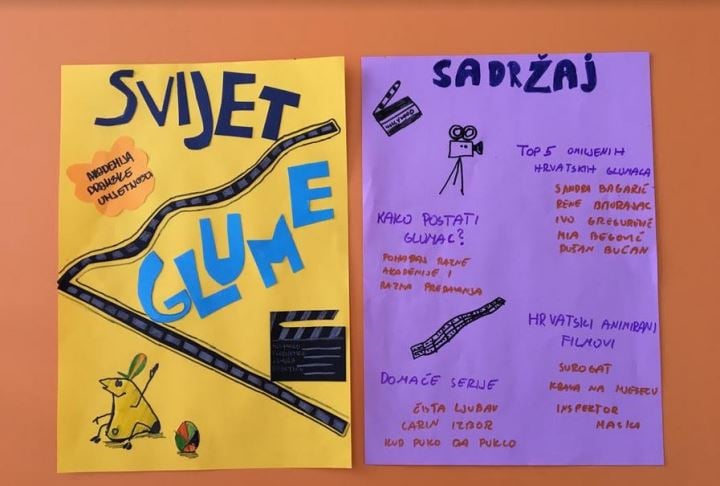 SVIJET
GLUME
AKADEMIJA
DRAMSKE
UMJETNOSTI
SADRŽAJ
TOP 5 OMILJENIH
HRVATSKIH GLUMACA
SANDRA BAGARIĆ
RENE BITORAJAC
IVO GREGUREVIĆ
MIA BEGOVIĆ
DUŠAN BUĆAN
KAKO POSTATI
GLUMAC?
POHAĐAJ RAZNE
AKADEMIJE I
RAZNA PREDAVANJA
HRVATSKI ANIMIRANI
FILMOVI
SUROGAT
KRAVA NA MJESECU
INSPEKTOR
MASKA
DOMAĆE SERIJE
ČISTA LJUBAV
LARIN IZBOR
KUD PUKO DA PUKLO